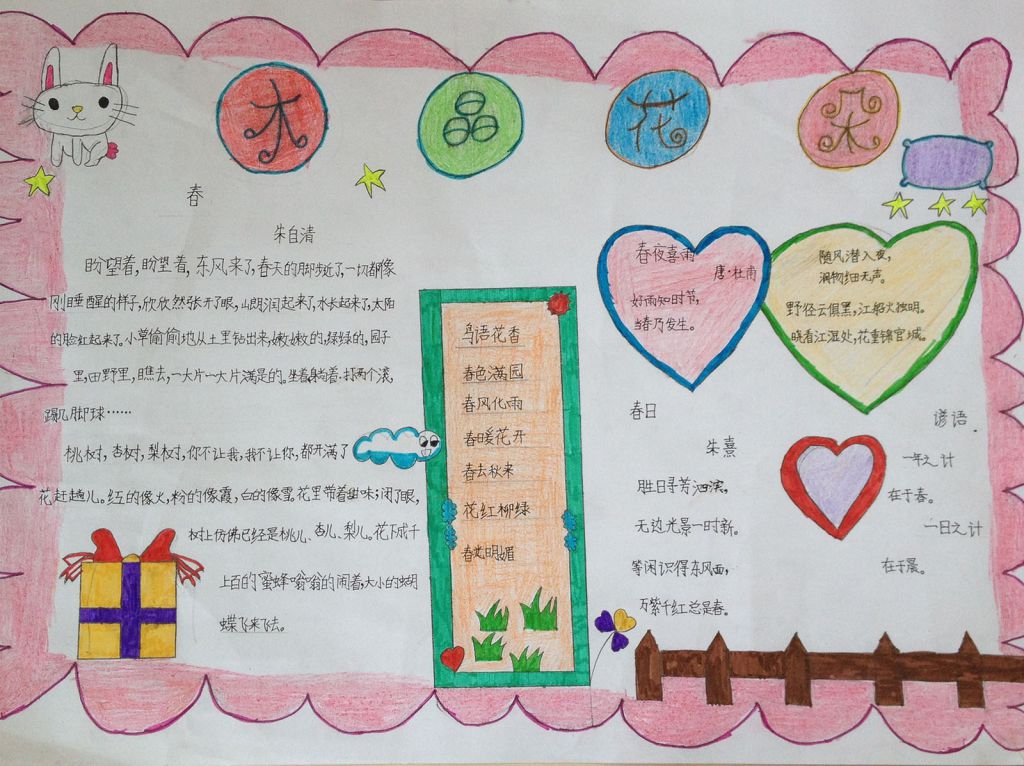 木 品 花 朵
春
朱自清
盼望着,盼望着,东风来了,春天的脚步近了,一切都像
刚睡醒的样子,欣欣然张开了眼,山朗润起来了,水长起来了,太阳
的脸红起来了。小草偷偷地从土里钻出来,嫩嫩的,绿绿的,园子
里,田野里,瞧去,一大片一大片满是的。坐着,躺着,打两个滚,
踢几脚球……
桃树,杏树,梨树,你不让我,我不让你,都开满了
花赶趟儿。红的像火,粉的像霞,白的像雪,花里带着甜味;闭了眼,
树上仿佛已经是桃儿、杏儿、梨儿。花下成千
上百的蜜蜂嗡嗡的闹着,大小的蝴
蝶飞来飞去。
鸟语花香
春色满园
春风化雨
春暖花开
春去秋来
花红柳绿
春光明媚
春夜喜雨
唐·杜甫
好雨知时节,
当春乃发生。
随风潜入夜,
润物细无声。
野径云俱黑,江船火独明。
晓看红湿处,花重锦官城。
春日
朱熹
胜日寻芳泗滨,
无边光景一时新。
等闲识得东风面,
万紫千红总是春。
谚语.
一年之计
在于春。
一日之计
在于晨。